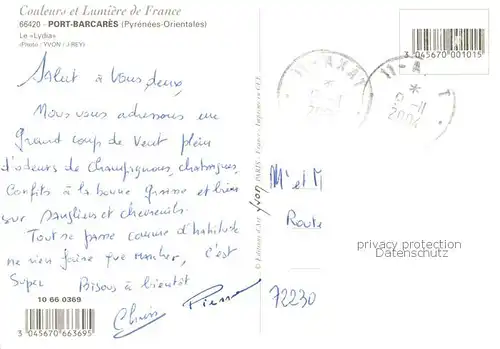 Couleurs et Lumière de France
66420 - PORT-BARCARÈS (Pyrénées-Orientales)
Le «Lydia»
(Photo : YVON / J REY)
Salut à vous deux,
Nous vous adressons un
Grand coup de vent plein
d'odeurs de champignons, chataignes,
Confits à la bonne graisse et bien
sur sangliers et chevreuils.
Tout se passe comme d'habitude
ne rien faire que manger, c'est
Super Bisous à bientôt
Pierre
10 66 0369
3 045670 663695
3 045670 001015
11-AXAT
2004
© Editions d'Art yvon PARIS - France -
M' et M
Route
privacy protection
Datenschutz
72230